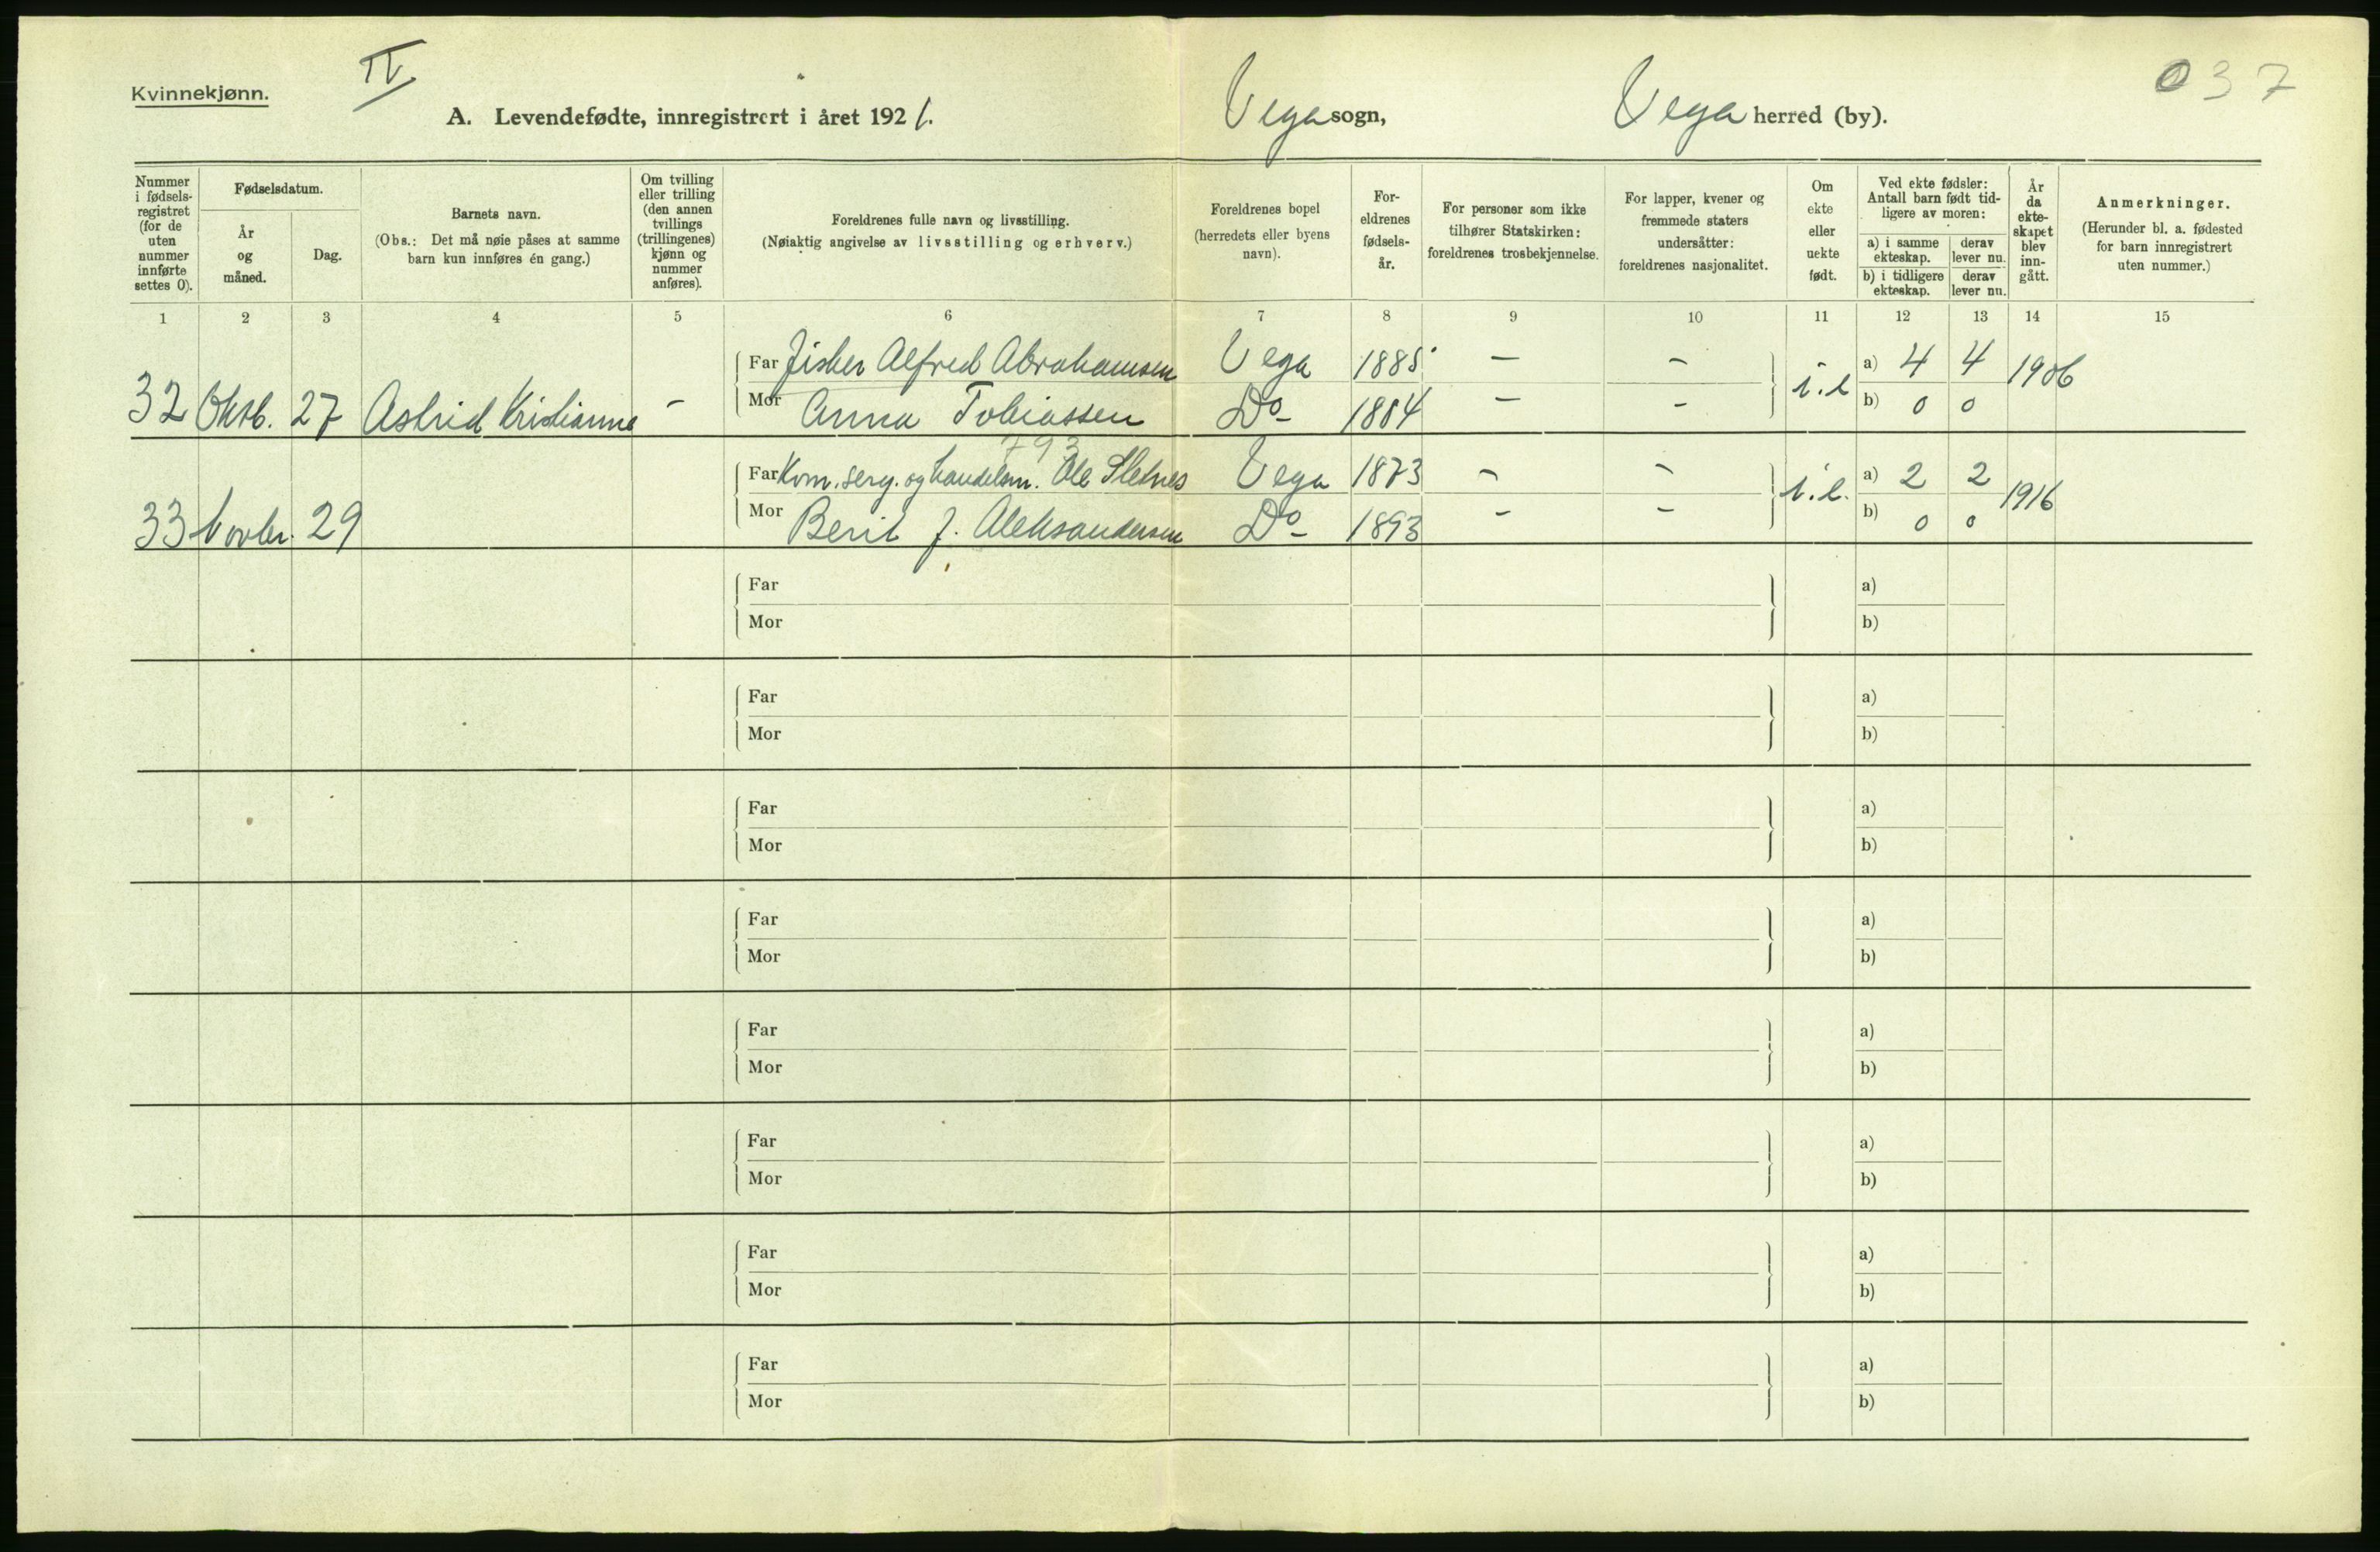 Kvinnekjønn.
IV.
037
A. Levendefødte, innregistrert i året 1921.
Vega sogn,
Vega herred (by).
Nummer i fødsels-registret (for de uten nummer innførte settes 0).
Fødselsdatum.
År og måned.
Dag.
Barnets navn.
(Obs.: Det må nøie påses at samme barn kun innføres én gang.)
Om tvilling eller trilling (den annen tvillings (trillingenes) kjønn og nummer anføres).
Foreldrenes fulle navn og livsstilling.
(Nøiaktig angivelse av livsstilling og erhverv.)
Foreldrenes bopel (herredets eller byens navn).
For-eldrenes fødsels-år.
For personer som ikke tilhører Statskirken: foreldrenes trosbekjennelse.
For lapper, kvener og fremmede staters undersåtter: foreldrenes nasjonalitet.
Om ekte eller uekte født.
Ved ekte fødsler: Antall barn født tid-ligere av moren:
a) i samme ekteskap.
derav lever nu.
b) i tidligere ekteskap.
derav lever nu.
År da ekte-skapet blev inn-gått.
Anmerkninger.
(Herunder bl. a. fødested for barn innregistrert uten nummer.)
1 2 3 4 5 6 7 8 9 10 11 12 13 14 15
Far Fisker Alfred Abrahamsen Vega 1885 — — a) 4 4
32 Oktb. 27 Astrid Kristianne - i.e 1906
Mor Anna Tobiassen Do- 1884 — - b) 0 0
793
Far Kom. serg. og handelsm. Ole Sletnes Vega 1873 - - a) 2 2
33 Novbr. 29 i.e. 1916
Mor Berit J. Aleksandersen Do- 1893 - - b) 0 0
Far a)
Mor b)
Far a)
Mor b)
Far a)
Mor b)
Far a)
Mor b)
Far a)
Mor b)
Far a)
Mor b)
Far a)
Mor b)
Far a)
Mor b)